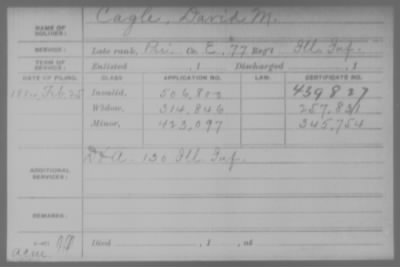 NAME OF SOLDIER: Cagle, David M.
SERVICE: Late rank, Pri. Co. E, 77 Reg't Ill. Inf.
TERM OF SERVICE: Enlisted , 1 Discharged , 1
DATE OF FILING. CLASS APPLICATION NO. LAW. CERTIFICATE NO.
Feb. 25 Invalid, 506,802 439827
Widow, 314,846 257,831
Minor, 423,097 345,754
ADDITIONAL SERVICES: 130 Ill. Inf.
REMARKS:
Died , 1 , at